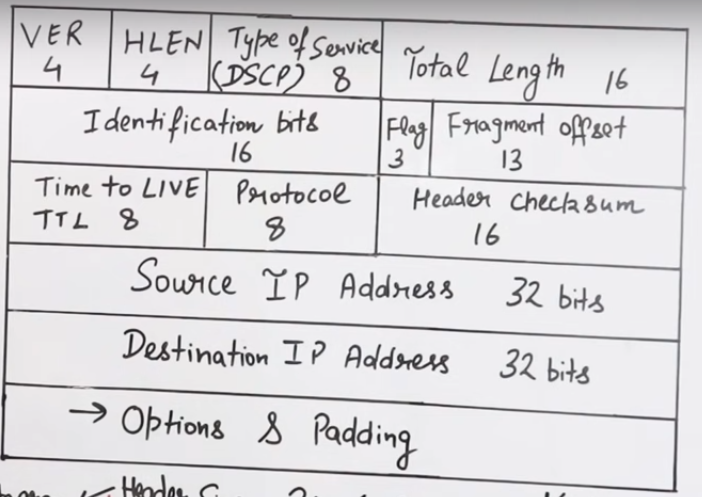 VER HLEN Type of Service Total Length 16
4 4 (DSCP) 8
Identification bits Flag Fragment offset
16 3 13
Time to LIVE Protocol Header checksum
TTL 8 8 16
Source IP Address 32 bits
Destination IP Address 32 bits
→ Options & Padding
Header